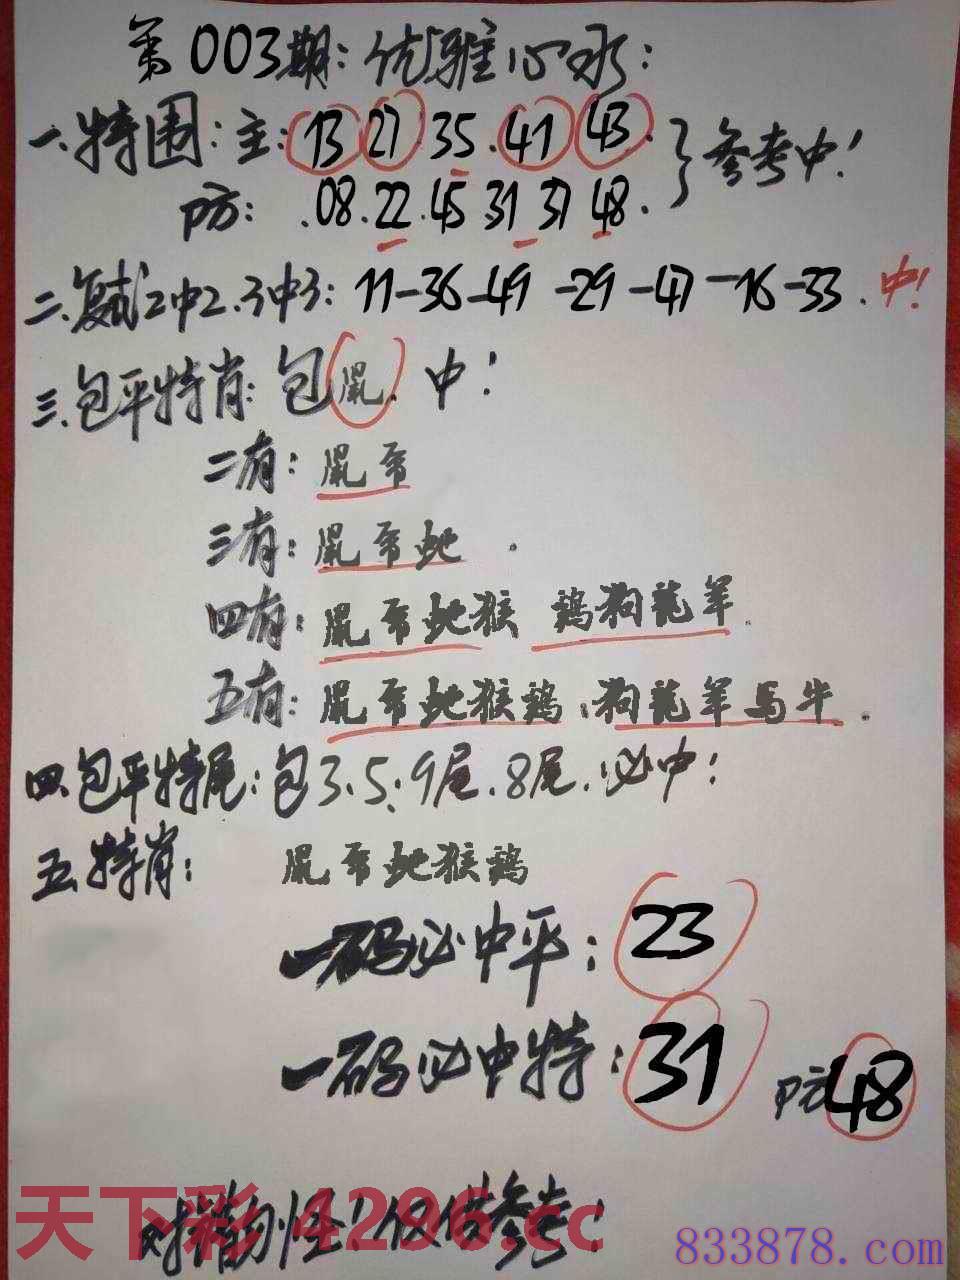 第003期：优雅心水：
一.特围：主：13 27 35.41 43.
防：.08.22.45 31 37 48.
参考中！
二.复式2中2.3中3：11-36-49-29-47-16-33.中！
三.包平特肖：包鼠.中！
二有：鼠帝
三有：鼠帝蛇.
四有：鼠帝蛇猴 鸡狗龙羊.
五有：鼠帝蛇猴鸡.狗龙羊马牛.
四.包平特尾：包3.5.9尾.8尾.必中！
五.特肖：鼠帝蛇猴鸡
一码必中平：23
一码必中特：31 防48
对错勿怪！仅供参考！
天下彩 4296.cc
833878.com